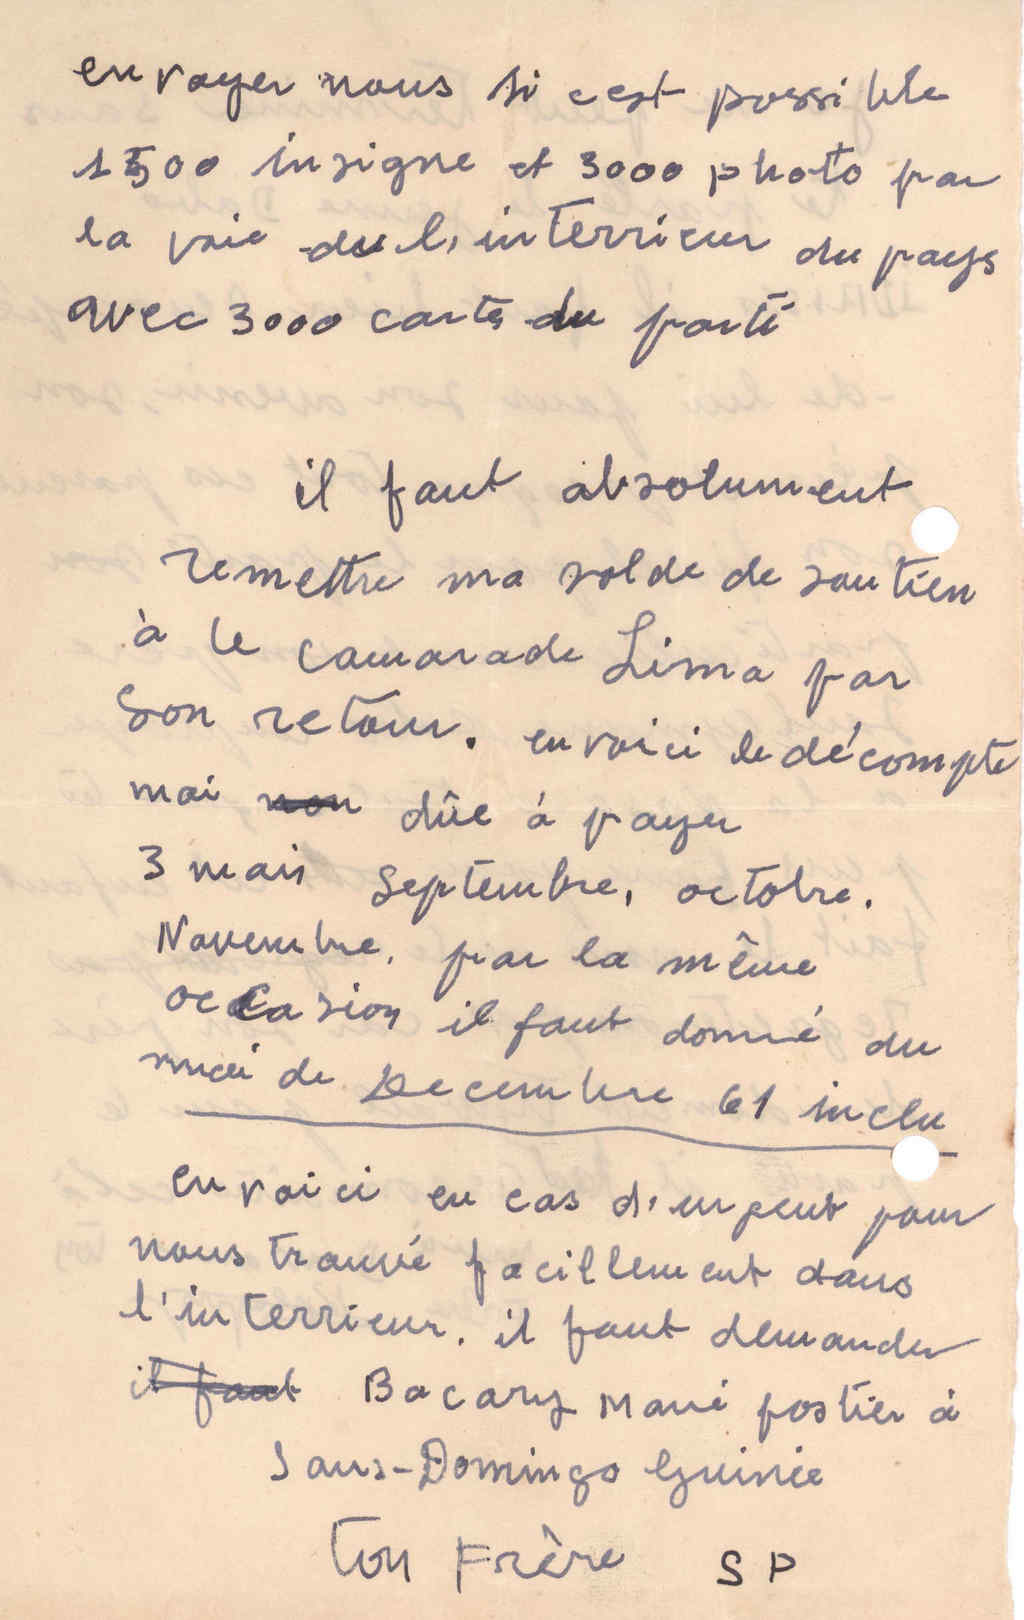 envoyer nous si c est possible
1500 insigne et 3000 photo par
la voie du l, interrieur du pays
avec 3000 carte du parti
il faut absolument
remettre ma solde de soutien
à le camarade Lima par
son retour. en voici le décompte
moi non dûe à payer
3 mois Septembre, octobre.
Novembre, par la même
occasion il faut donné du
moi de Decembre 61 inclu
en voici en cas d'urgent pour
nous trouvé facillement dans
l'interrieur. il faut demander
il faut Bacary Mané postier à
Sans-Domingo Guinée
Ton Frère SP